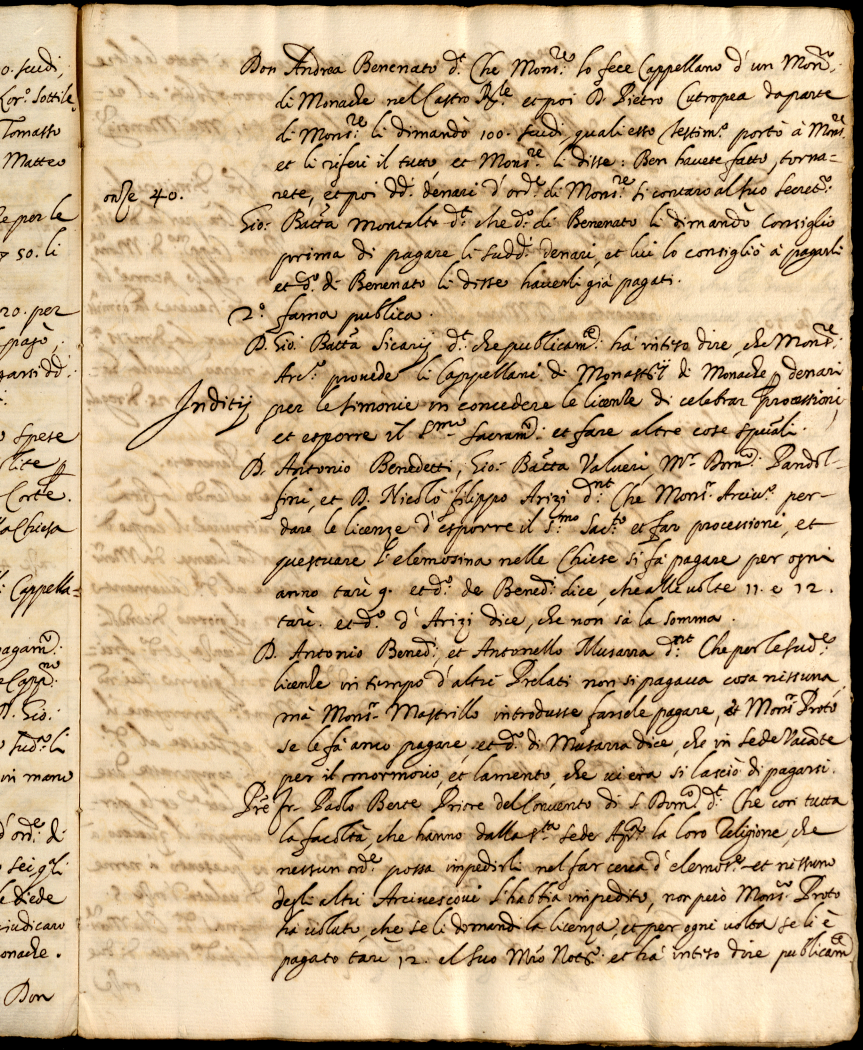 o. scudi,
Lor.o Sottile
Tomasso
Matteo
e per le
50. li
20. per
pagò,
garsi dd.i
spese
lite
Corte.
la Chiesa
Cappella=
pagam.ti
D. Gio:
sud.o li
in mano
d'ord.e di
sei, gli
le diede
giudicavo
onache.
Don
Don Andrea Benenato d.t Che Mons.re lo fece Cappellano d'un Mon.ro
di Monache nel Castro R.le et poi D. Pietro Cutropea da parte
di Mons.re li dimandò 100. scudi, quali esso testim.o portò à Mons.re
et li riferì il tutto et Mons.re li disse: Ben havete fatto, torna=
onze 40.
rete, et poi dd.i denari d'ord.e di Mons.re si contaro al suo Secret.o
Gio: Batta Montalto d.t che d.o di Benenato li dimandò Consiglio
prima di pagare li sudd.i denari, et lui lo consigliò à pagarli
et d.o di Benenato li disse haverli già pagati.
2.o fama publica.
D. Gio: Batta Sicarij d.t che publicam.e hà inteso dire, che Mons.re
Arc.o provede li Cappellani di Monasterij di Monache p denari
Inditij
per le simonie in concedere le licenze di celebrar processioni,
et esporre il S.mo Sacram.to et fare altre cose spuali.
D. Antonio Benedetti, Gio: Batta Valueri, M.ro Dom.o Pandol=
fini, et D. Nicolò filippo Arizi d.nt Che Mons.r Arciv.o per
dare le licenze d'esporre il S.mo Sac.to et far processioni, et
questuare l'elemosina nelle Chiese si fà pagare per ogni
anno tarì 9. et d.o de Bened.i dice, che alle volte 11. e 12.
tarì. et d.o d'Arizi dice, che non sà la somma.
D. Antonio Bened.i, et Antonello Musarra d.nt Che per le sud.e
licenze in tempo d'altri Prelati non si pagava cosa nissuna
mà Mons.r Mastrillo introdusse farsele pagare, et Mons.r Proto
se le fà anco pagare, et d.o di Musarra dice, che in Sede Vacante
per il mormorio, et lamento, che vi era si lasciò di pagarsi.
Pre fr. Paolo Berte Priore del Convento di S. Dom.o d.t Che con tutta
la facoltà, che hanno dalla S.ta Sede Ap.ca la loro Religione, che
nessun ord.e possa impedirli nel far cerca d'elemos.e et nissuno
degli altri Arcivescovi l'habbia impedito, non però Mons.r Proto
hà voluto, che se li domandi la licenza, et per ogni volta se li è
pagato tarì 12. al suo Mro Not.o et hà inteso dire publicam.e